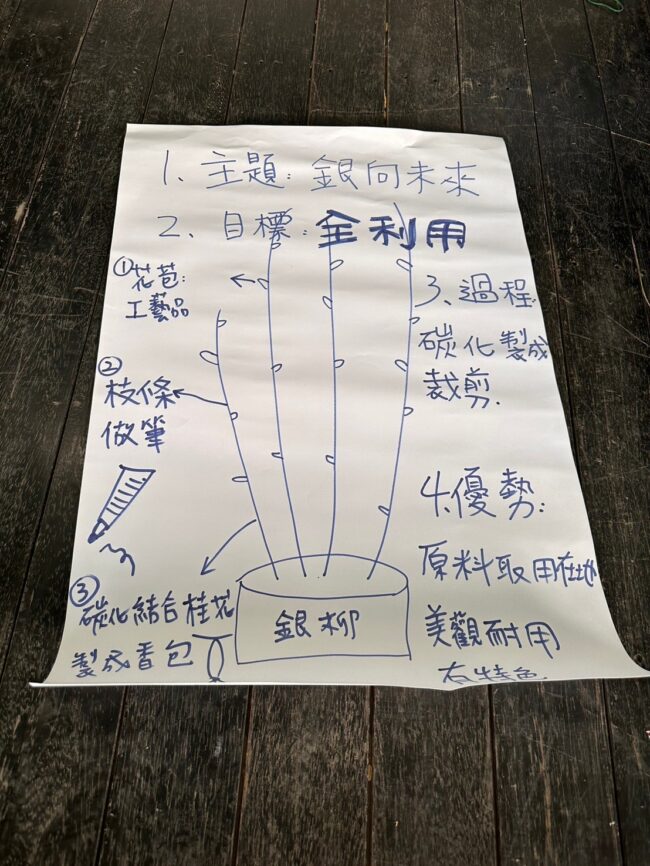 1、主題：銀向未來
2、目標：全利用
①花苞：
工藝品
②
枝條
做筆
③
碳化結合桂花
製成香包
3、過程：
碳化製成
裁剪.
4.優勢：
原料取用在地
美觀耐用
有特色.
銀柳